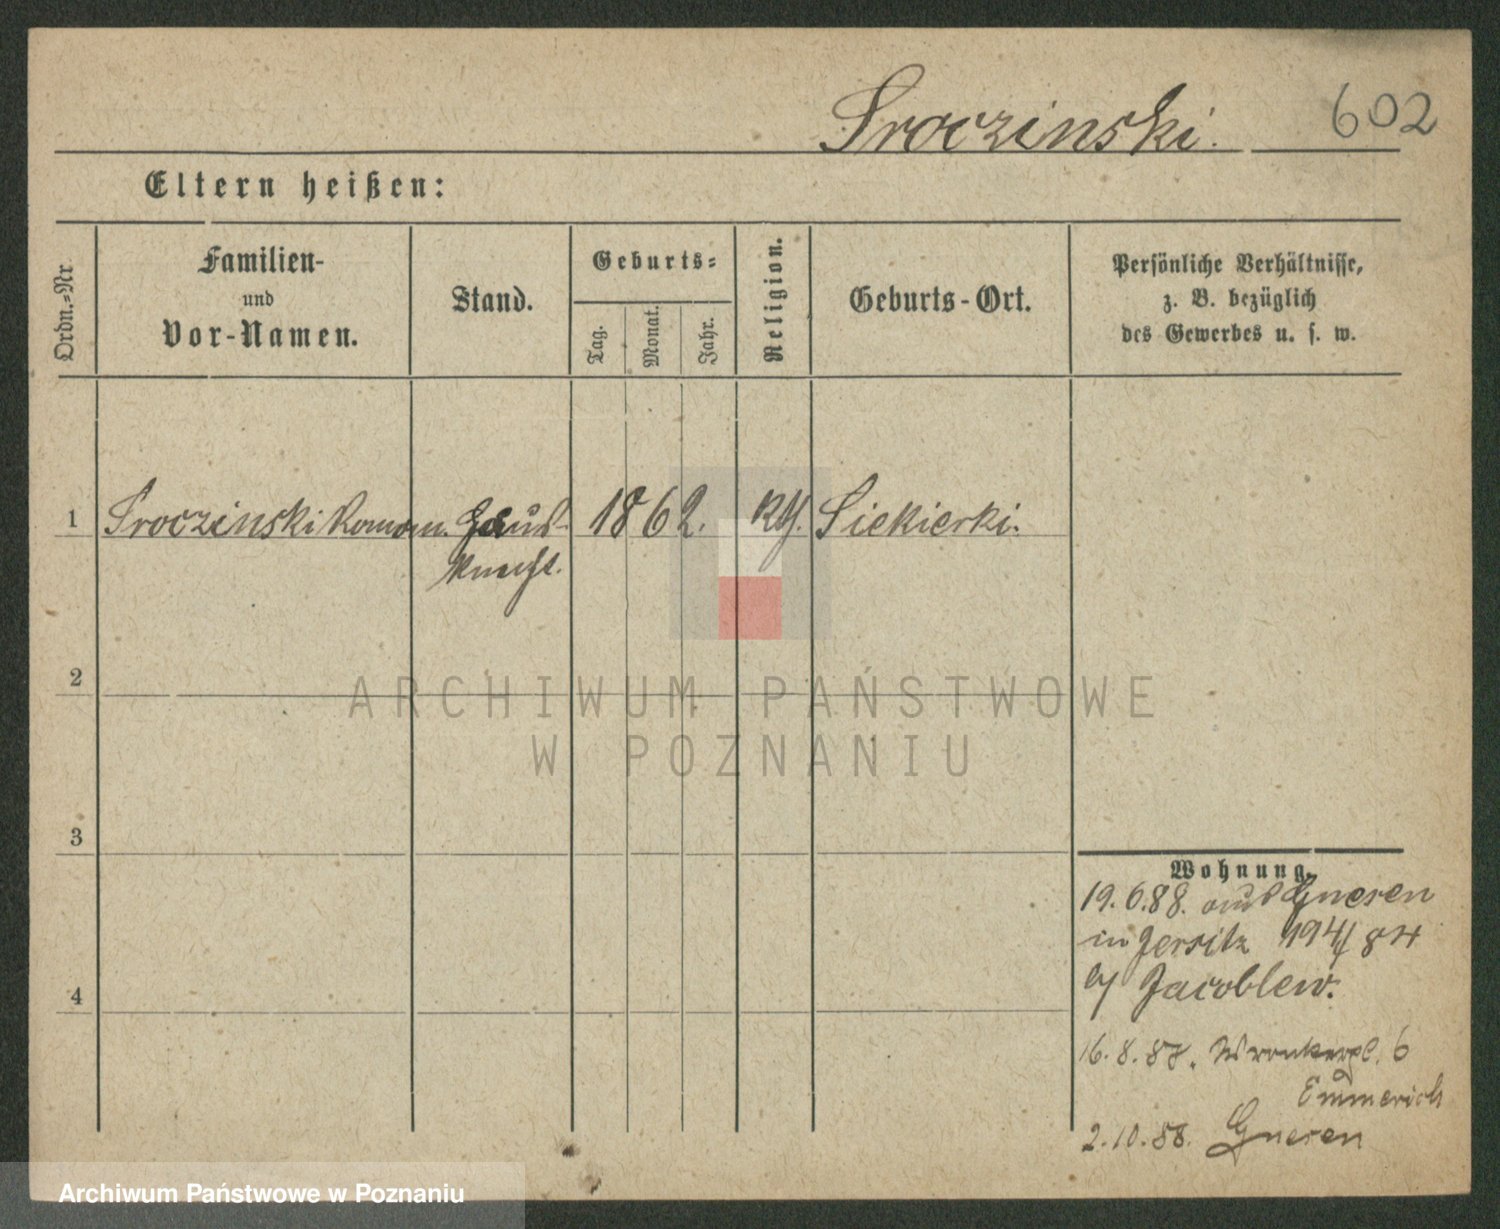 Sroczinski.
602
Eltern heißen:
Ordn.-Nr
Familien-
und
Vor-Namen.
Stand.
Geburts-
Tag.
Monat.
Jahr.
Religion.
Geburts-Ort.
Persönliche Verhältnisse,
z. B. bezüglich
des Gewerbes u. s. w.
1 Sroczinski Roman. Haus- 1862. kth. Siekierki.
knecht.
2
3
4
Wohnung.
19.6.88. aus Gnesen
in Jersitz 194/84
b/ Jacoblew.
16.8.88. Wronkerpl. 6
Emmerich
2.10.88. Gnesen
ARCHIWUM PAŃSTWOWE
W POZNANIU
Archiwum Państwowe w Poznaniu